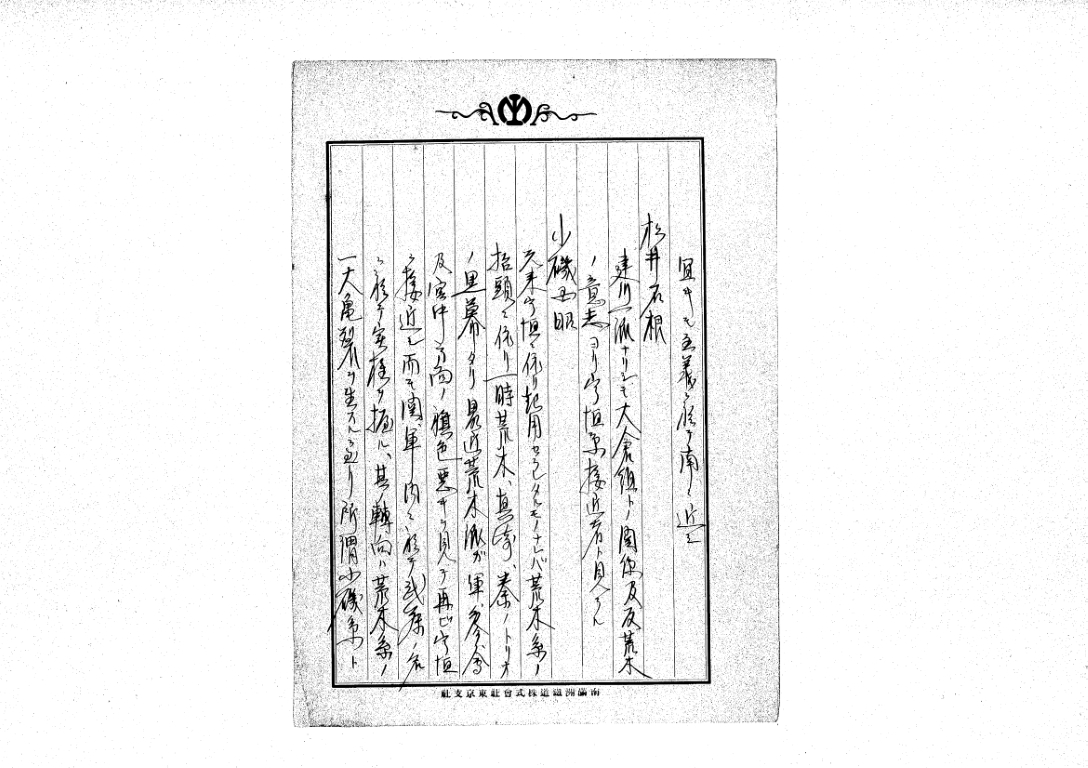 宜キモ主義ニ於テ南ニ近シ
松井石根
建川一派ナリシモ大倉組トノ関係及反荒木
ノ意志ヨリ宇垣系接近者ト見ラル
小磯国昭
元来宇垣ニ依リ起用セラレタルモノナレバ荒木系ノ
抬頭ニ依リ一時荒木、真崎、秦ノトリオ
ノ黒幕タリ最近荒木派ガ軍、参、会
及宮中方面ノ旗色悪キヲ見テ再ビ宇垣
ニ接近シ而モ関軍ノ内ニ於テ武藤ノ名
ニ於テ実権ヲ握ル、其ノ転向ハ荒木系ノ
一大亀裂ヲ生ズルニ至リ所謂小磯系ト
南滿洲鐵道株式會社東京支社